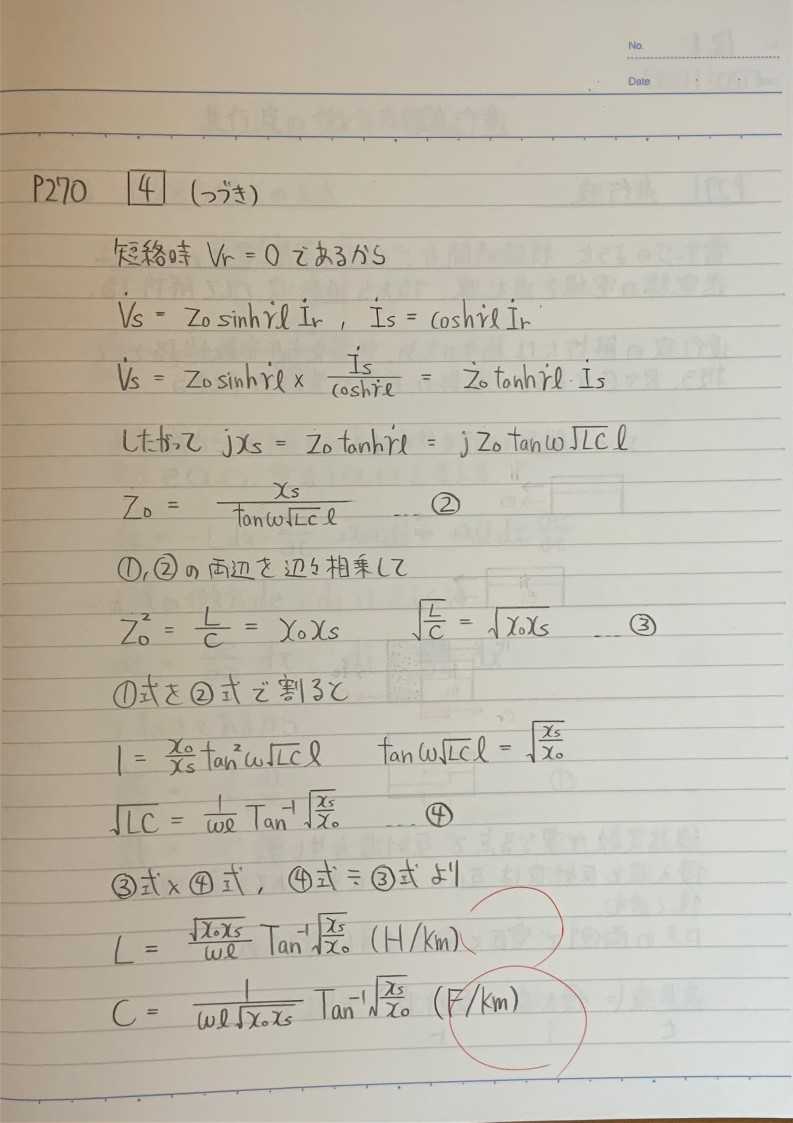 No.
Date
P270 4 (つづき)
短絡時 Vr = 0 であるから
V̇s = Z₀ sinh γ̇l İr , İs = cosh γ̇l İr
V̇s = Z₀ sinh γ̇l × İs/cosh γ̇l = Ż₀ tanh γ̇l · İs
したがって jxs = Z₀ tanh γ̇l = j Z₀ tan ω√LC l
Z₀ = xs / tan ω√LC l ... ②
①,②の両辺を辺々相乗して
Z₀² = L/C = x₀xs √(L/C) = √(x₀xs) ... ③
①式を②式で割ると
1 = x₀/xs tan² ω√LC l tan ω√LC l = √(xs/x₀)
√LC = 1/ωl Tan⁻¹ √(xs/x₀) ... ④
③式×④式, ④式÷③式より
L = √(x₀xs)/ωl Tan⁻¹ √(xs/x₀) (H/km)
C = 1/(ωl√(x₀xs)) Tan⁻¹ √(xs/x₀) (F/km)